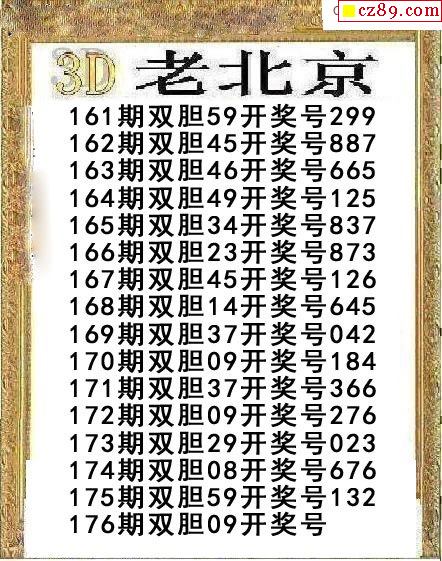 cz89.com
3D 老北京
161期双胆59开奖号299
162期双胆45开奖号887
163期双胆46开奖号665
164期双胆49开奖号125
165期双胆34开奖号837
166期双胆23开奖号873
167期双胆45开奖号126
168期双胆14开奖号645
169期双胆37开奖号042
170期双胆09开奖号184
171期双胆37开奖号366
172期双胆09开奖号276
173期双胆29开奖号023
174期双胆08开奖号676
175期双胆59开奖号132
176期双胆09开奖号